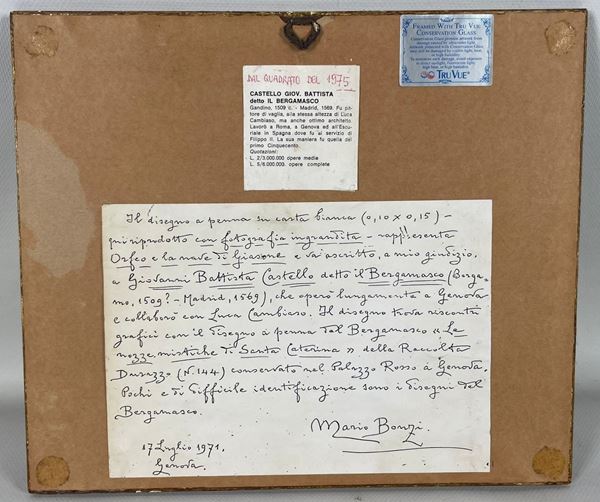 FRAMED WITH TRU VUE
CONSERVATION GLASS
TRU VUE®
DAL QUADRATO DEL 1975
CASTELLO GIOV. BATTISTA
detto IL BERGAMASCO
Gandino, 1509 c. - Madrid, 1569. Fu pit-
tore di vaglia, alla stessa altezza di Luca
Cambiaso, ma anche ottimo architetto.
Lavorò a Roma, a Genova ed all'Escu-
riale in Spagna dove fu al servizio di
Filippo II. La sua maniera fu quella del
primo Cinquecento.
Quotazioni:
L. 2/3.000.000 opere medie
L. 5/6.000.000 opere complete
Il disegno a penna su carta bianca (0,10 x 0,15) -
qui riprodotto con fotografia ingrandita - rappresenta
Orfeo e la nave di Giasone e va ascritto, a mio giudizio,
a Giovanni Battista Castello detto il Bergamasco (Berga-
mo, 1509? - Madrid, 1569), che operò lungamente a Genova
e collaborò con Luca Cambiaso. Il disegno trova riscontri
grafici con il disegno a penna del Bergamasco « Le
nozze mistiche di Santa Caterina » della Raccolta
Durazzo (N. 144) conservato nel Palazzo Rosso a Genova.
Pochi e di difficile identificazione sono i disegni del
Bergamasco.
Mario Bonzi.
17 Luglio 1971.
Genova.